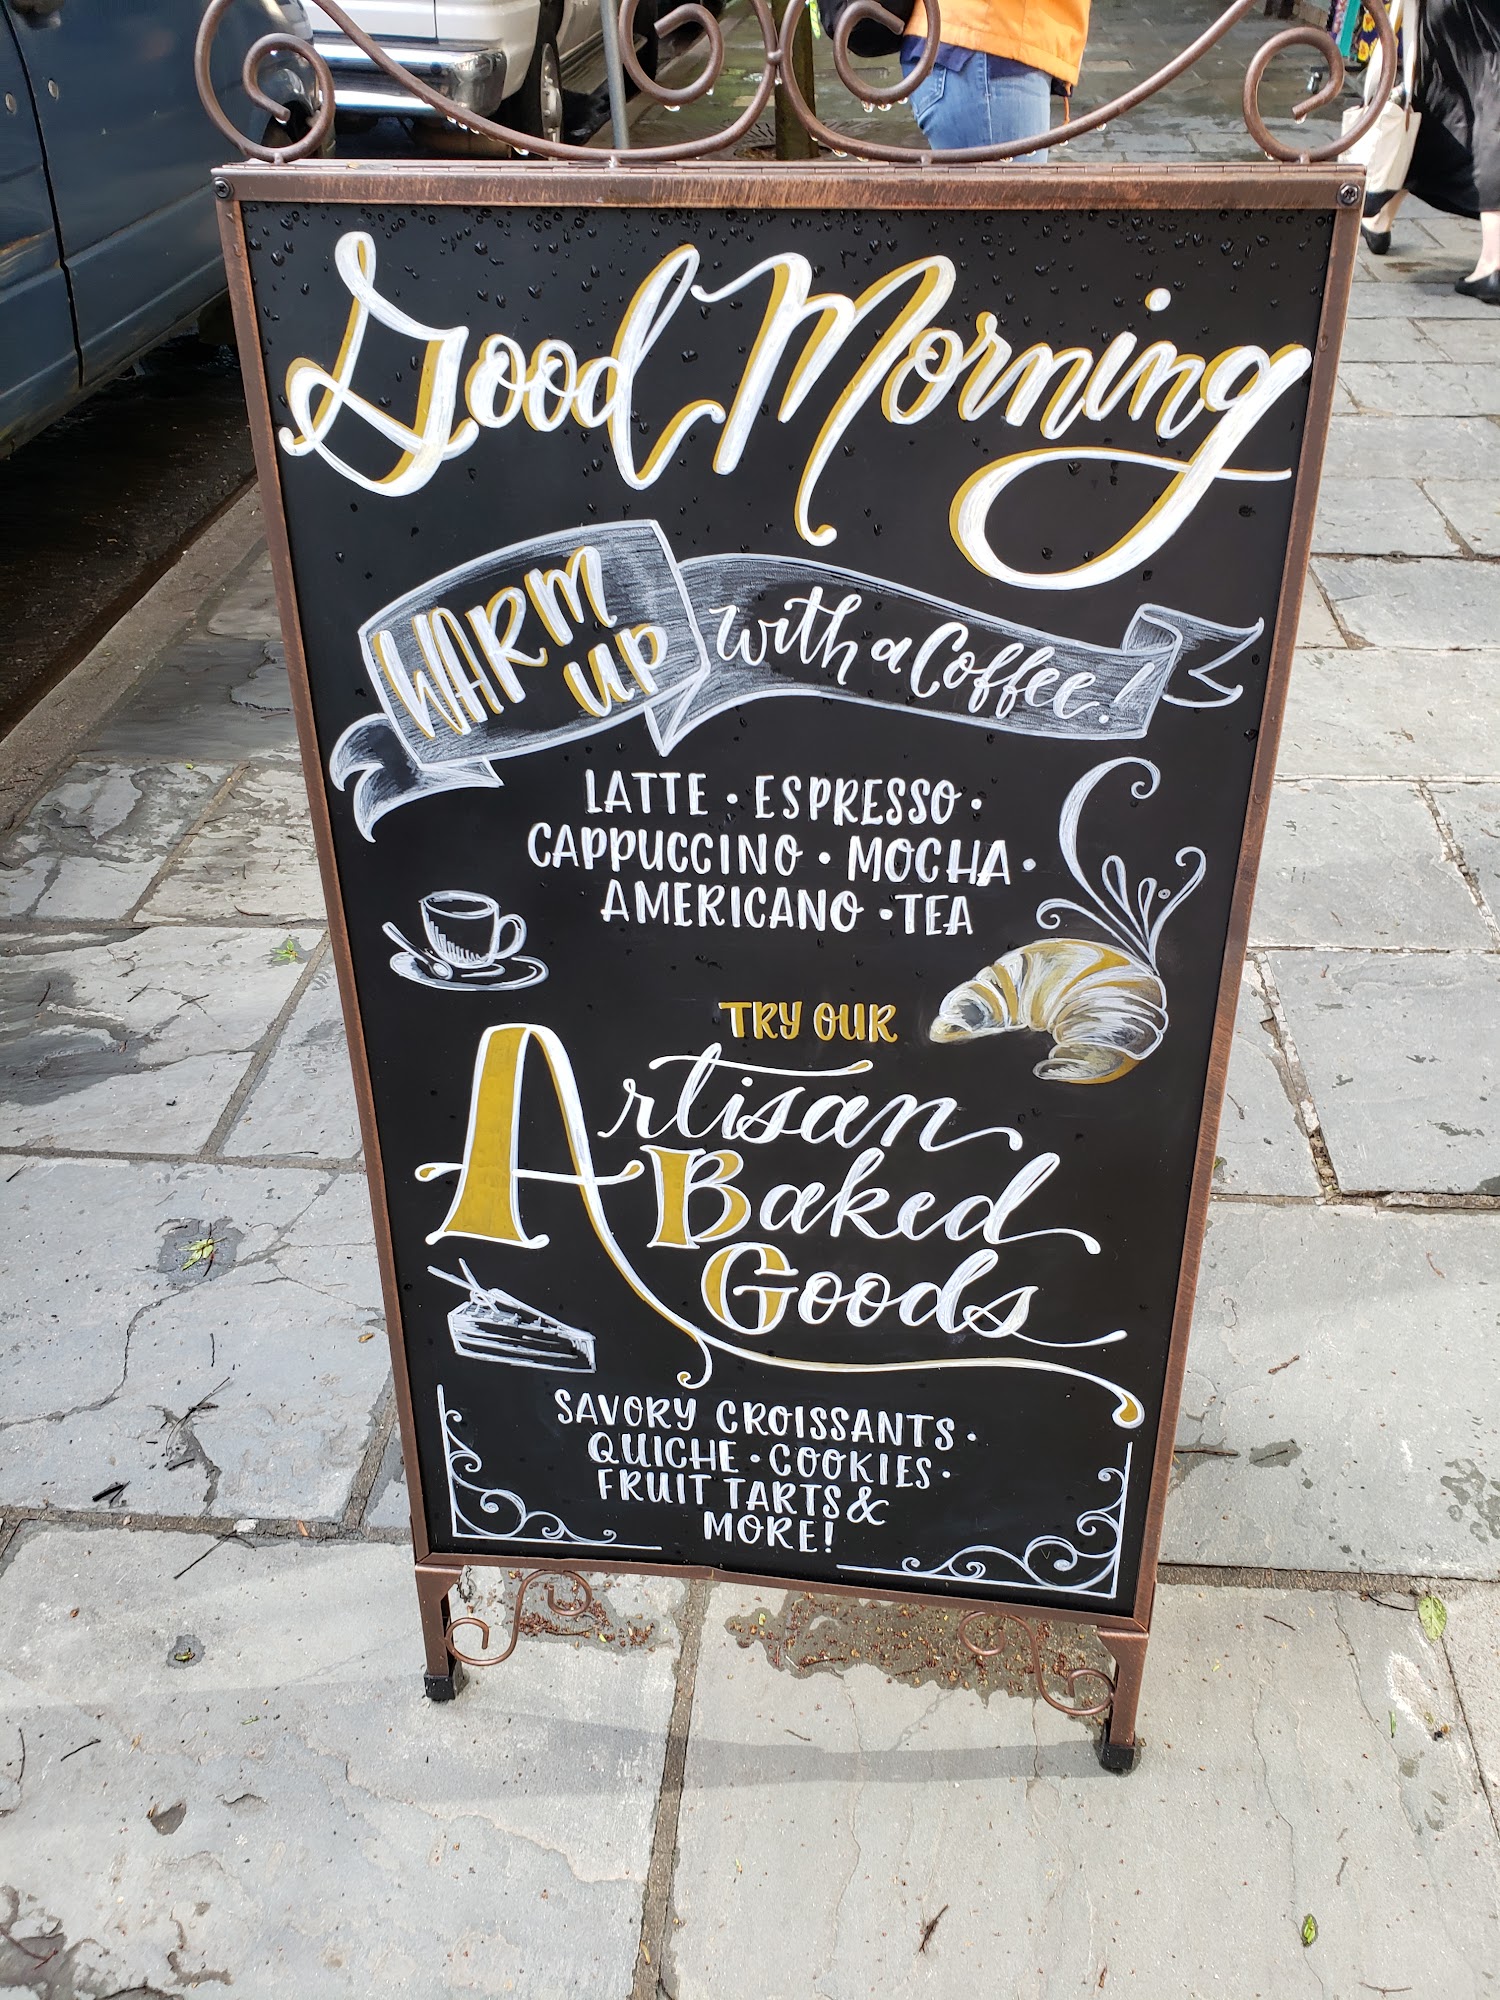 Good Morning
WARM UP with a Coffee!
LATTE · ESPRESSO ·
CAPPUCCINO · MOCHA ·
AMERICANO · TEA
TRY OUR
Artisan
Baked
Goods
SAVORY CROISSANTS ·
QUICHE · COOKIES ·
FRUIT TARTS &
MORE!